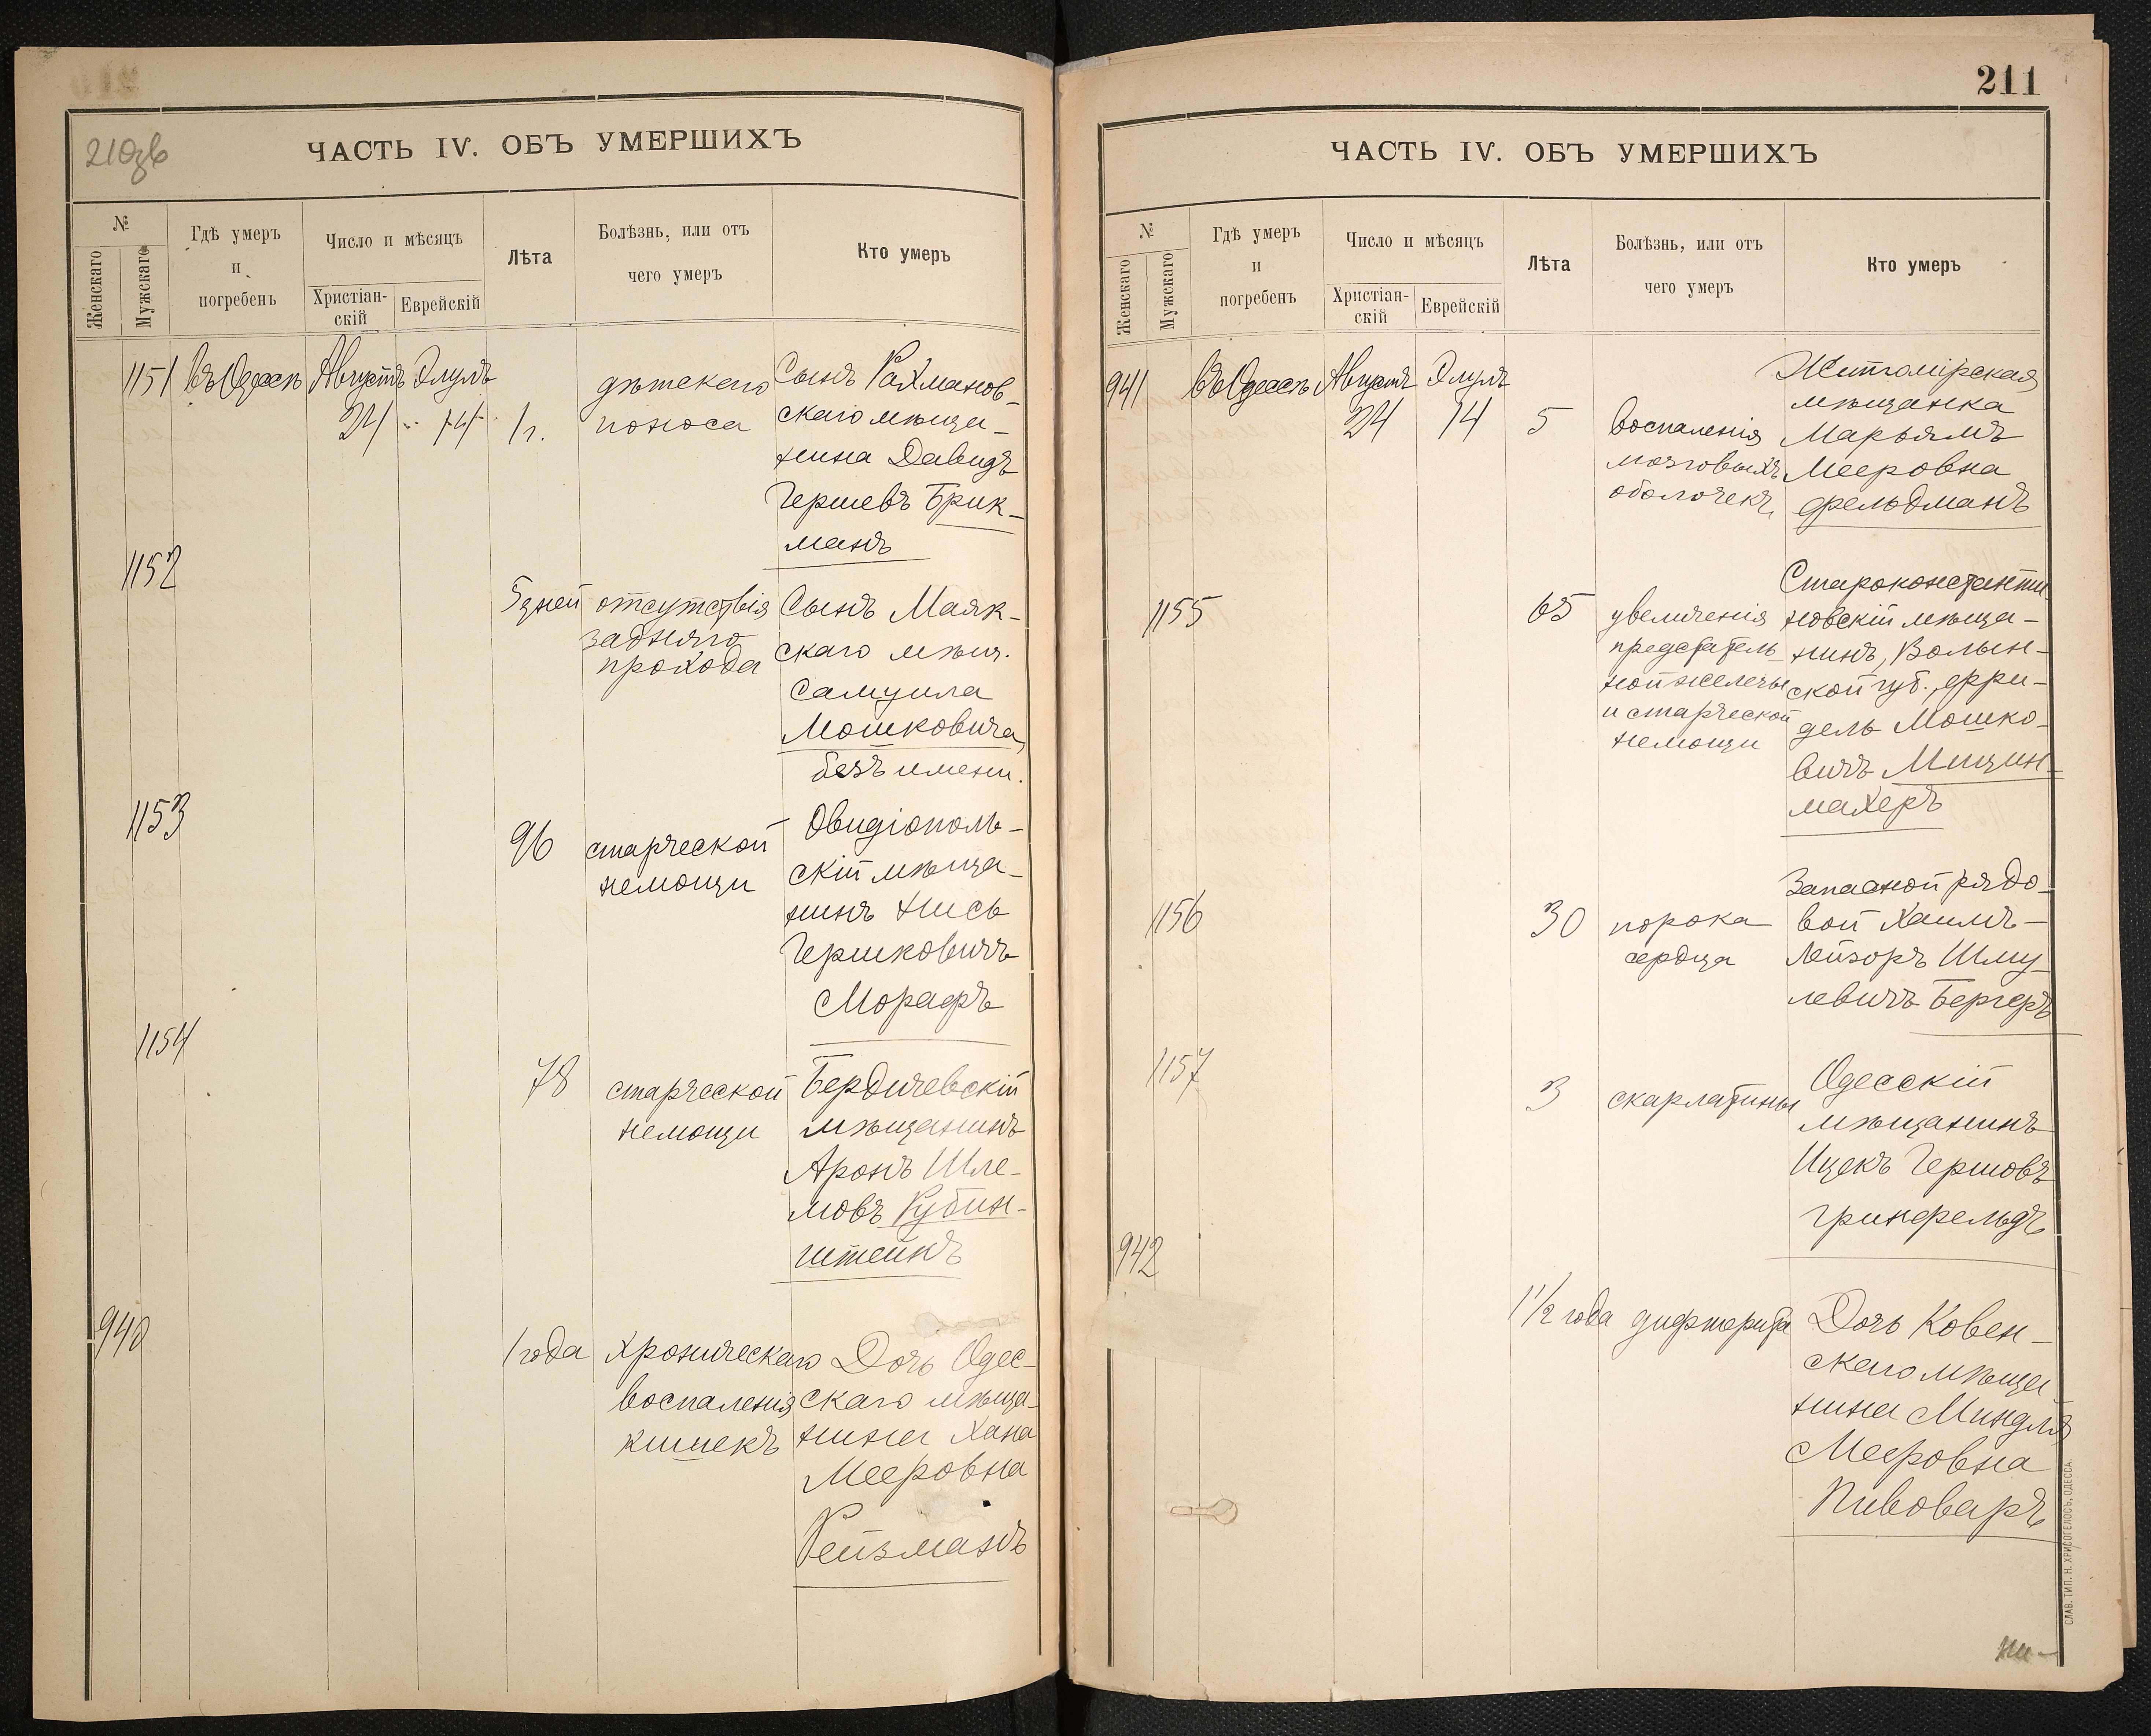 210зв
ЧАСТЬ IV. ОБЪ УМЕРШИХЪ
№
Женскаго
Мужскаго
Гдѣ умеръ
и
погребенъ
Число и мѣсяцъ
Христіан-
скій
Еврейскій
Лѣта
Болѣзнь, или отъ
чего умеръ
Кто умеръ
1151 Въ Одессѣ Августъ Элулъ
24 14 1 г.
дѣтскаго
поноса
Сынъ Рахманов-
скаго мѣща-
нина Давидъ
Гершевъ Брик-
манъ
1152
5 дней
отсутствія
задняго
прохода
Сынъ Маяк-
скаго мѣщ.
Самуила
Мошковича,
безъ имени.
1153
96
старческой
немощи
Овидіополь-
скій мѣща-
нинъ Нись
Гершковичъ
Морафъ
1154
78
старческой
немощи
Бердичевскій
мѣщанинъ
Аронъ Шле-
мовъ Рубин-
штейнъ
940
1 года
хроническаго
воспаленія
кишекъ
Дочь Одес-
скаго мѣща-
нина Хана
Мееровна
Рейзманъ
211
ЧАСТЬ IV. ОБЪ УМЕРШИХЪ
№
Женскаго
Мужскаго
Гдѣ умеръ
и
погребенъ
Число и мѣсяцъ
Христіан-
скій
Еврейскій
Лѣта
Болѣзнь, или отъ
чего умеръ
Кто умеръ
941 Въ Одессѣ Августъ Элулъ
24 14 5
воспаленія
мозговыхъ
оболочекъ
Житомірская
мѣщанка
Марьямъ
Мееровна
Фельдманъ
1155
65
увеличенія
предстатель-
ной железы
и старческой
немощи
Староконстанти-
новскій мѣща-
нинъ, Волын-
ской губ., Фри-
дель Мошко-
вичъ Мицин-
махеръ
1156
30
порока
сердца
Запасной рядо-
вой Хаимъ-
Лейзоръ Шму-
левичъ Бергеръ
1157
3
скарлатины
Одесскій
мѣщанинъ
Ицекъ Гершовъ
Гринфельдъ
942
1 1/2 года
дифтерита
Дочь Ковен-
скаго мѣща
нина Миндля
Мееровна
Пивоваръ
СЛАВ. ТИП. Н. ХРИСОГЕЛОСЪ, ОДЕССА.